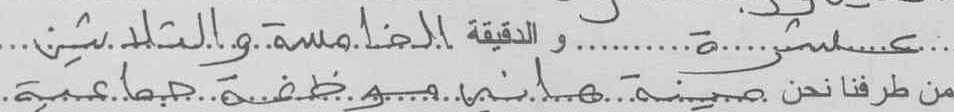 عشرة و الدقيقة الخامسة والثلاثين
من طرفنا نحن مينة هاني موظفة جماعية